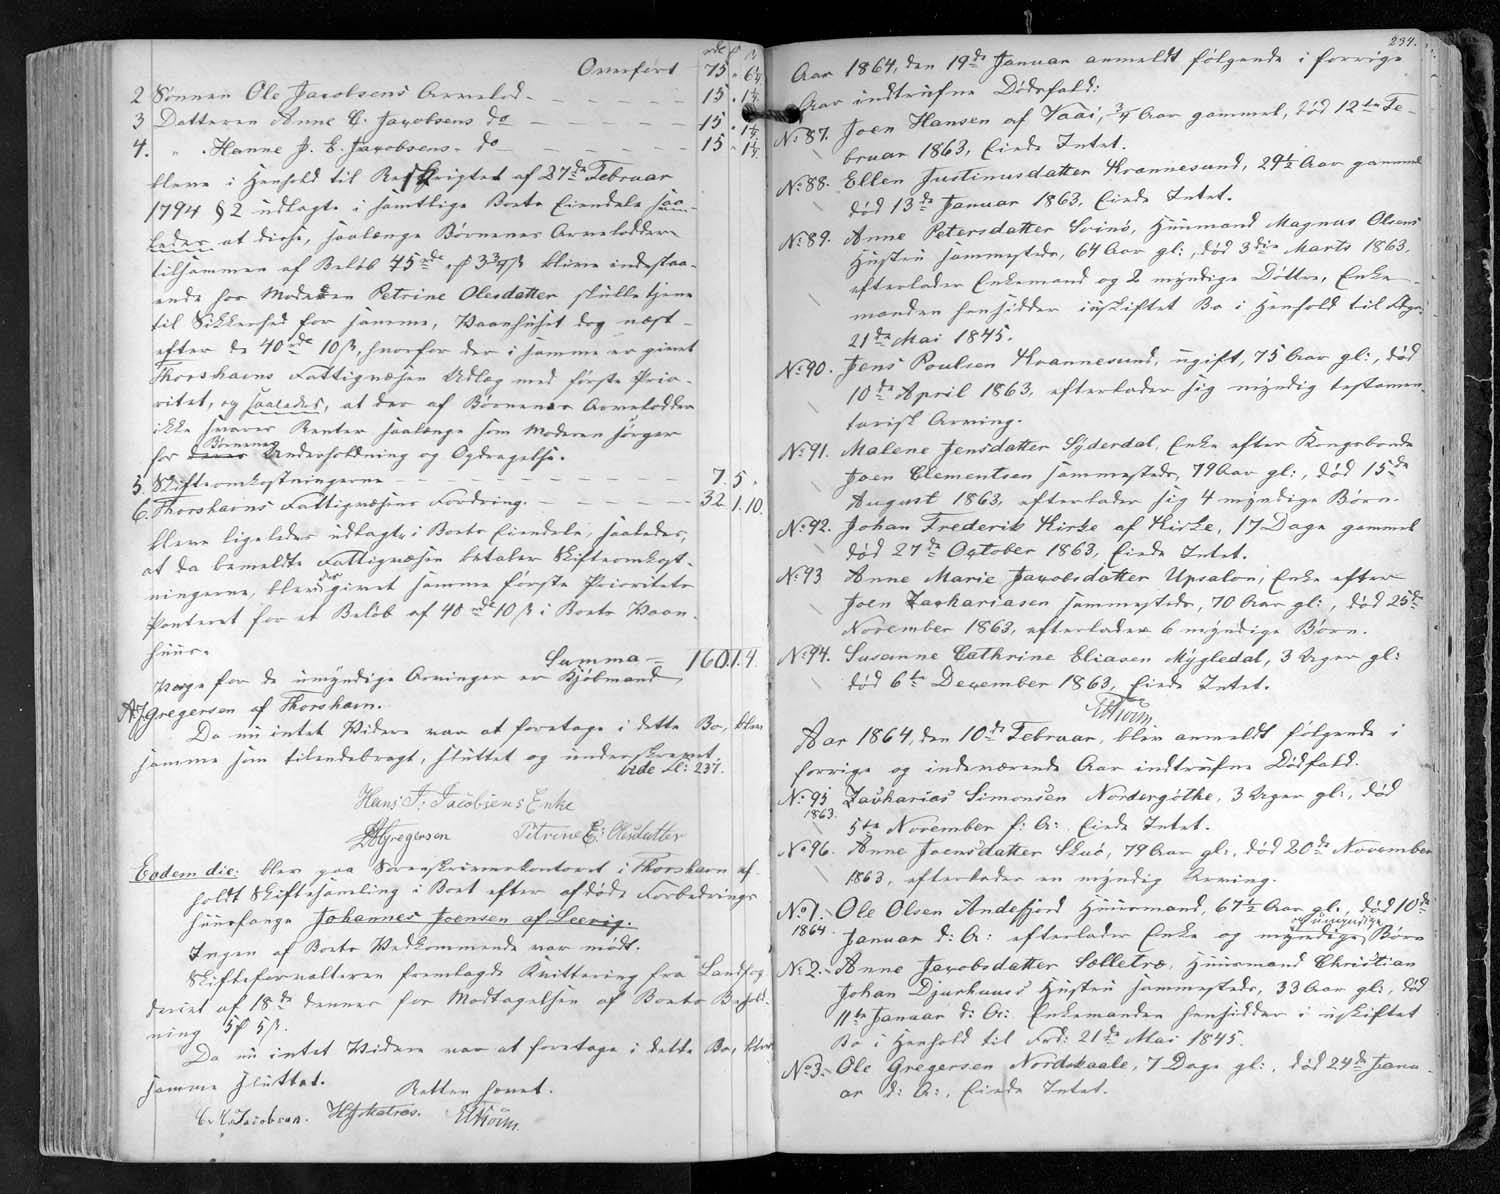 rdl ₰ ß
Overført 75 „ 6¼
2 Sønnen Ole Jacobsens Arvelod 15 „ 1¼
3 Datteren Anne C. Jacobsens do 15 „ 1¼
4. „ Hanne J. E. Jacobsens do 15 „ 1¼
bleve i Henhold til Reskriptet af 27de Februar
1794 § 2 udlagte i samtlige Boets Eiendele saa-
ledes at disse, saalænge Børnenes Arvelodder
tilsammen af Beløb 45 rdl 3¾ ß blive indestaa-
ende hos Moderen Petrine Olesdatter skulle tjene
til Sikkerhed for samme, Vaanhuset dog næst-
efter de 40 rdl 10 ß, hvorfor der i samme er givet
Thorshavns Fattigvæsen Udlæg med første Prio-
ritet, og saaledes, at der af Børnenes Arvelodder
ikke svares Renter saalænge som Moderen sørger
for Børnenes Underholdning og Opdragelse.
5. Skifteomkostningerne 7 5 „
6. Thorshavns Fattigvæsens Fordring 32. 1. 10.
bleve ligeledes udlagte i Boets Eiendele, saaledes,
at da bemeldte Fattigvæsen betaler Skifteomkost-
ningerne, blev der givet samme første Prioritets
Panteret for et Beløb af 40 rdl 10 ß i Boets Vaan-
huus.
Summa = 160. 1. 4.
Værge for de umyndige Arvinger er Kjøbmand
A. J. Gregersen af Thorshavn.
Da nu intet Videre var at foretage i dette Bo, blev
samme som tilendebragt, sluttet og underskrevet.
vide fl: 237.
Hans J. Jacobsens Enke
Gregersen Petrine E: Olesdatter
Eodem die: blev paa Sorenskriverkontoret i Thorshavn af-
holdt Skiftesamling i Boet efter afdøde Forbedrings
huusfange Johannes Joensen af Leervig.
Ingen af Boets Vedkommende var mødt.
Skifteforvalteren fremlagde Kvittering fra Landfog-
deriet af 18de dennes for Modtagelsen af Boets Behold-
ning 5 ₰ 5 ß.
Da nu intet Videre var at foretage i dette Bo, blev
samme sluttet.
Retten hævet.
C. C. Jacobsen. EHolm.
234.
Aar 1864, den 19de Januar anmeldt følgende i forrige
Aar indtrufne Dødsfald:
No 87. Joen Hansen af Vaai, ¾ Aar gammel, død 12te Fe-
bruar 1863, Eiede Intet.
No 88. Ellen Justinusdatter Hvannesund, 29½ Aar gammel
død 13de Januar 1863, Eiede Intet.
No 89. Anne Petersdatter Svinø, Huusmand Magnus Olsens
Hustru sammesteds, 64 Aar gl:, død 3die Marts 1863.
efterlader Enkemand og 2 myndige Døttre, Enke-
manden henhidder i uskiftet Bo i Henhold til Frd:
21de Mai 1845.
No 90. Jens Poulsen Hvannesund, ugift, 75 Aar gl:, død
10de April 1863, efterlader sig myndig testamen-
tarisk Arving.
No 91. Malene Jensdatter Syderdal, Enke efter Kongsbonde
Joen Clementsen sammesteds, 79 Aar gl:, død 15de
August 1863, efterlader sig 4 myndige Børn.
No 92. Johan Frederik Kirke af Kirke, 17 Dage gammel
død 27de October 1863, Eiede Intet.
No 93 Anne Marie Jacobsdatter Upsalon, Enke efter
Joen Zachariasen sammesteds, 70 Aar gl:, død 25de
November 1863, efterlader 6 myndige Børn.
No 94. Susanne Cathrine Eliasen Mygledal, 3 Uger gl:
død 6te December 1863, Eiede Intet.
EHolm
Aar 1864, den 10de Februar, blev anmeldt følgende i
forrige og indeværende Aar indtrufne Dødsfald.
No 95 Zacharias Simonsen Nordergøthe, 3 Uger gl:, død
1863. 5te November f: A: Eiede Intet.
No 96. Anne Joensdatter Skuø, 79 Aar gl:, død 20de November
1863, efterlader en myndig Arving.
No 1. Ole Olsen Andefjord Huusmand, 67½ Aar gl:, død 10de
1864. Januar d: A: efterlader Enke og myndige og umyndige Børn
No 2. Anne Jacobsdatter Selletræ, Huusmand Christian
Johan Djurhuuss Hustru sammesteds, 33 Aar gl:, død
11te Januar d: A: Enkemanden henhidder i uskiftet
Bo i Henhold til Frd: 21de Mai 1845.
No 3. Ole Gregersen Nordskaale, 7 Dage gl:, død 24de Janu-
ar d: A:, Eiede Intet.